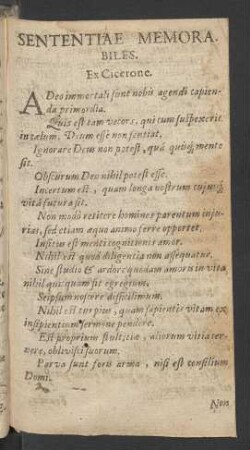 SENTENTIAE MEMORA-
BILES.
Ex Cicerone.
A Deo immortali sunt nobis agendi capien-
da primordia.
Quis est tam vecors, qui cum suspexerit
in cælum, Deum esse non sentiat.
Ignorare Deus non potest, quâ quisq; mente
sit.
Obscurum Deo nihil potest esse.
Incertum est, quam longa nostrum cujusq;
vita futura sit.
Non modò reticere homines parentum inju-
rias, sed etiam æquo animo ferre oportet.
Insitus est menti cognitionis amor.
Nihil est quod diligentia non assequatur.
Sine studio & ardore quodam amoris in vita
nihil quicquam sit egregium.
Seipsum noscere difficilimum.
Nihil est turpius, quam sapientis vitam ex
insipientium sermone pendere.
Est proprium stultitiæ, aliorum vitia cer-
nere, oblivisci suorum.
Parva sunt foris arma, nisi est consilium
Domi.
Non